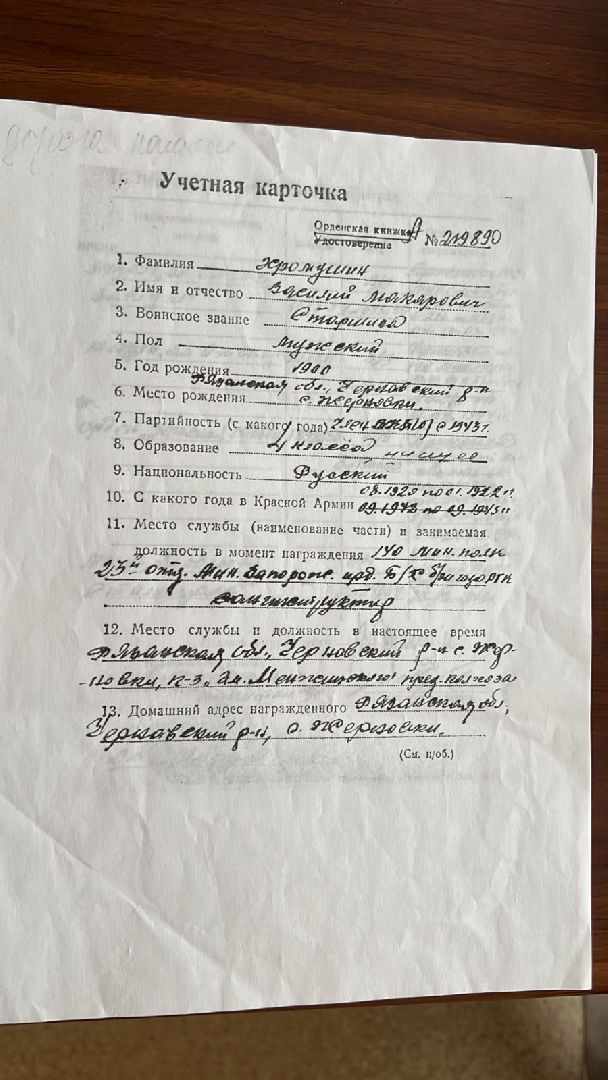 дорога
Учетная карточка
Орденская книжка А № 219890
Удостоверение
1. Фамилия Хромушин
2. Имя и отчество Василий Макарович
3. Воинское звание Старшина
4. Пол мужской
5. Год рождения 1900
Рязанская обл., Чернавский р-н
6. Место рождения с. Жерновки.
7. Партийность (с какого года) Член ВКП(б) с 1943 г.
8. Образование 4 класса
9. Национальность Русский
03.1920 по 01.1922 г.
10. С какого года в Красной Армии 09.1942 по 09.1945 г.
11. Место службы (наименование части) и занимаемая
должность в момент награждения 140 мин. полк
23й отд. Мин. Запорож. орд. Б/Х бригады РГК
санинструктор
12. Место службы и должность в настоящее время
Рязанская обл., Чернавский р-н с. Жер-
-новки, к-з им. Менжинского пред. колхоза
13. Домашний адрес награжденного Рязанская обл,
Чернавский р-н, с. Жерновки.
(См. н/об.)